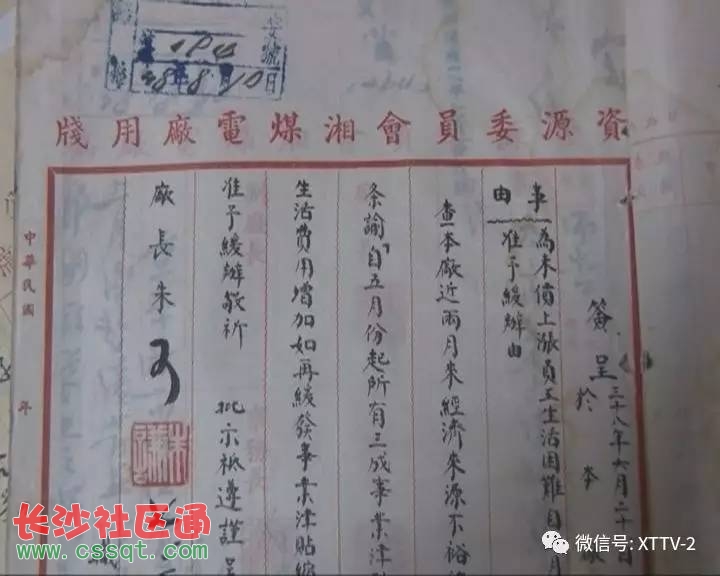 資源委員會湘煤電廠用牋
簽呈 三十八年六月二十日
於本廠
事由
為米價上漲員工生活困難自月
准予緩辦由
查本廠近兩月來經濟來源不裕
条諭自五月份起所有三成事業津
生活費用增加如再緩發事業津貼
准予緩辦敬祈
批示祇遵謹呈
廠長朱
中華民國 年
號
38年8月10日
长沙社区通
www.cssqt.com
微信号: XTTV-2